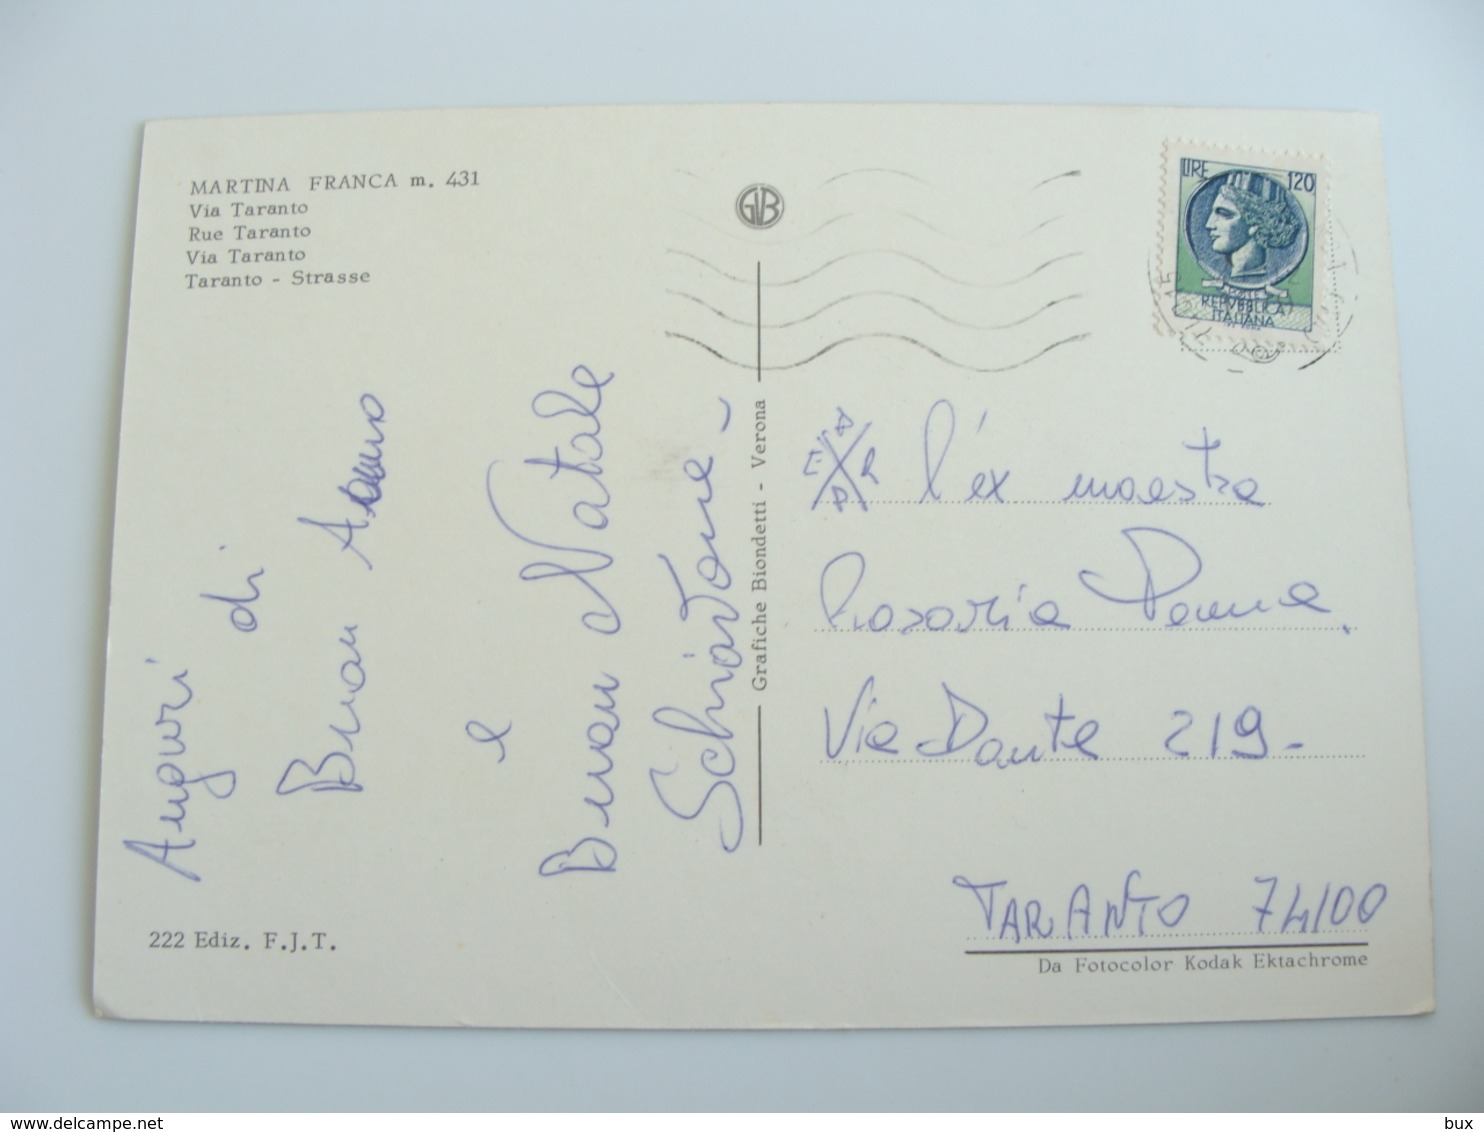 MARTINA FRANCA m. 431
Via Taranto
Rue Taranto
Via Taranto
Taranto - Strasse
GVB
LIRE 120
POSTE
REPVBBLICA
ITALIANA
Auguri di
Buon Anno
e
Buon Natale
Schiavone -
Grafiche Biondetti - Verona
l'ex maestra
Rosaria Penna
Via Dante 219-
TARANTO 74100
222 Ediz. F.J.T.
Da Fotocolor Kodak Ektachrome
delcampe.net
bux